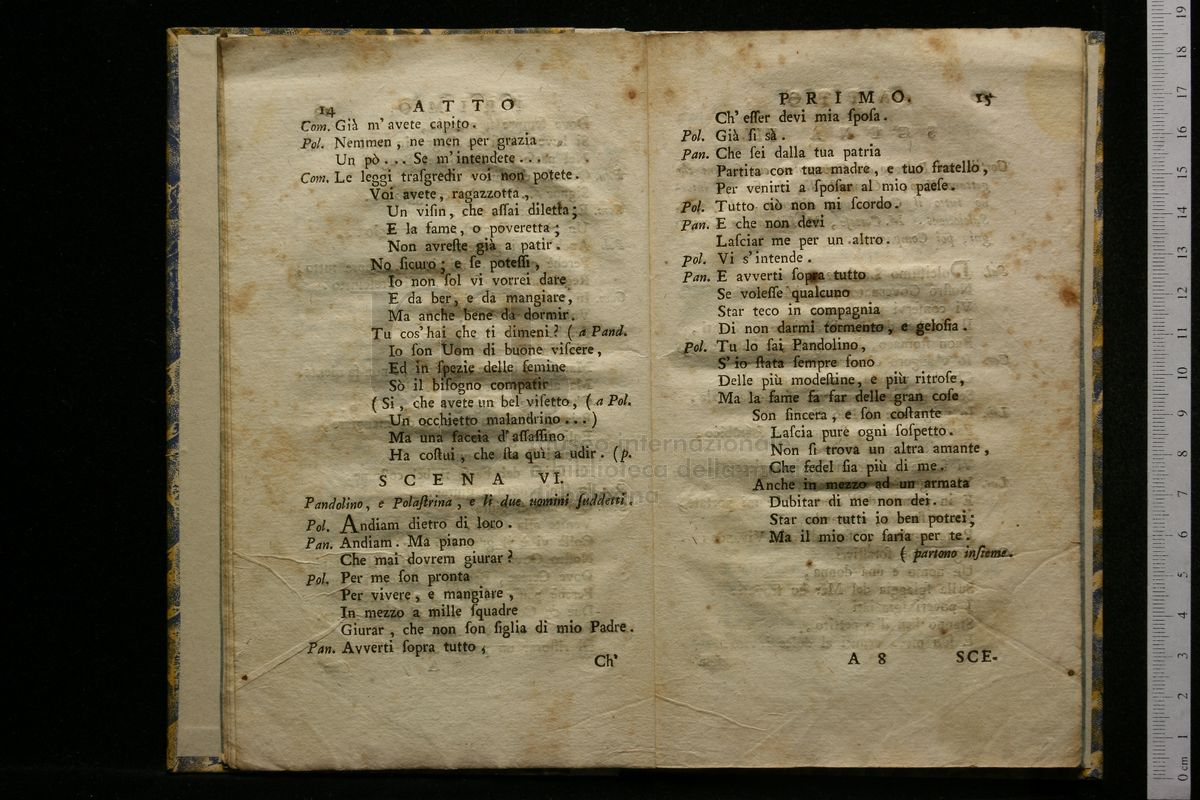 14 ATTO
Com. Già m'avete capito.
Pol. Nemmen, ne men per grazia
Un pò... Se m'intendete...
Com. Le leggi traſgredir voi non potete.
Voi avete, ragazzotta,
Un viſin, che aſſai diletta;
E la fame, o poveretta;
Non avreſte già a patir.
No ſicuro; e ſe poteſſi,
Io non ſol vi vorrei dare
E da ber, e da mangiare,
Ma anche bene da dormir.
Tu cos'hai che ti dimeni? (a Pand.
Io ſon Uom di buone viſcere,
Ed in ſpezie delle femine
Sò il biſogno compatir
(Si, che avete un bel viſetto, (a Pol.
Un occhietto malandrino...)
Ma una faccia d'aſſaſſino
Ha coſtui, che ſta quì a udir. (p.
SCENA VI.
Pandolino, e Polaſtrina, e li due uomini ſuddetti.
Pol. Andiam dietro di loro.
Pan. Andiam. Ma piano
Che mai dovrem giurar?
Pol. Per me ſon pronta
Per vivere, e mangiare,
In mezzo a mille ſquadre
Giurar, che non ſon figlia di mio Padre.
Pan. Avverti ſopra tutto,
Ch'
PRIMO. 15
Ch' eſſer devi mia ſpoſa.
Pol. Già ſi sà.
Pan. Che ſei dalla tua patria
Partita con tua madre, e tuo fratello,
Per venirti a ſpoſar al mio paeſe.
Pol. Tutto ciò non mi ſcordo.
Pan. E che non devi
Laſciar me per un altro.
Pol. Vi s'intende.
Pan. E avverti ſopra tutto
Se voleſſe qualcuno
Star teco in compagnia
Di non darmi tormento, e geloſia.
Pol. Tu lo ſai Pandolino,
S'io ſtata ſempre ſono
Delle più modeſtine, e più ritroſe,
Ma la fame fa far delle gran coſe
Son ſincera, e ſon coſtante
Laſcia pure ogni ſoſpetto.
Non ſi trova un altra amante,
Che fedel ſia più di me.
Anche in mezzo ad un armata
Dubitar di me non dei.
Star con tutti io ben potrei;
Ma il mio cor ſaria per te.
(partono inſieme.
A 8 SCE-
museo internazionale
e biblioteca della musica